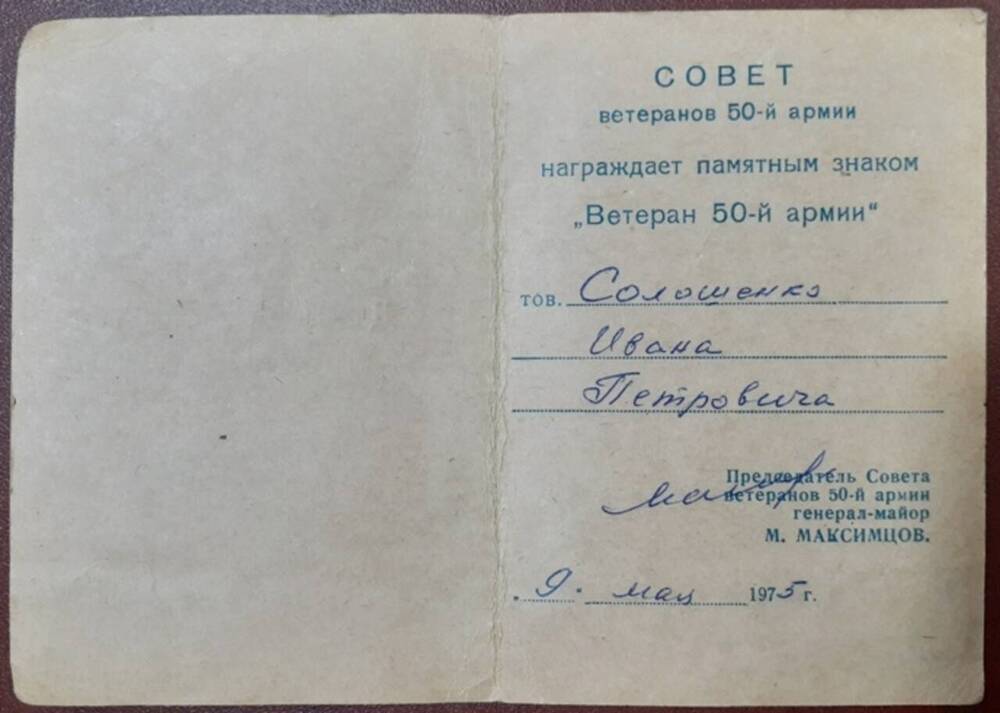 СОВЕТ
ветеранов 50-й армии
награждает памятным знаком
„Ветеран 50-й армии“
тов. Солошенко
Ивана
Петровича
Председатель Совета
ветеранов 50-й армии
генерал-майор
М. МАКСИМЦОВ.
„ 9 " мая 1975 г.